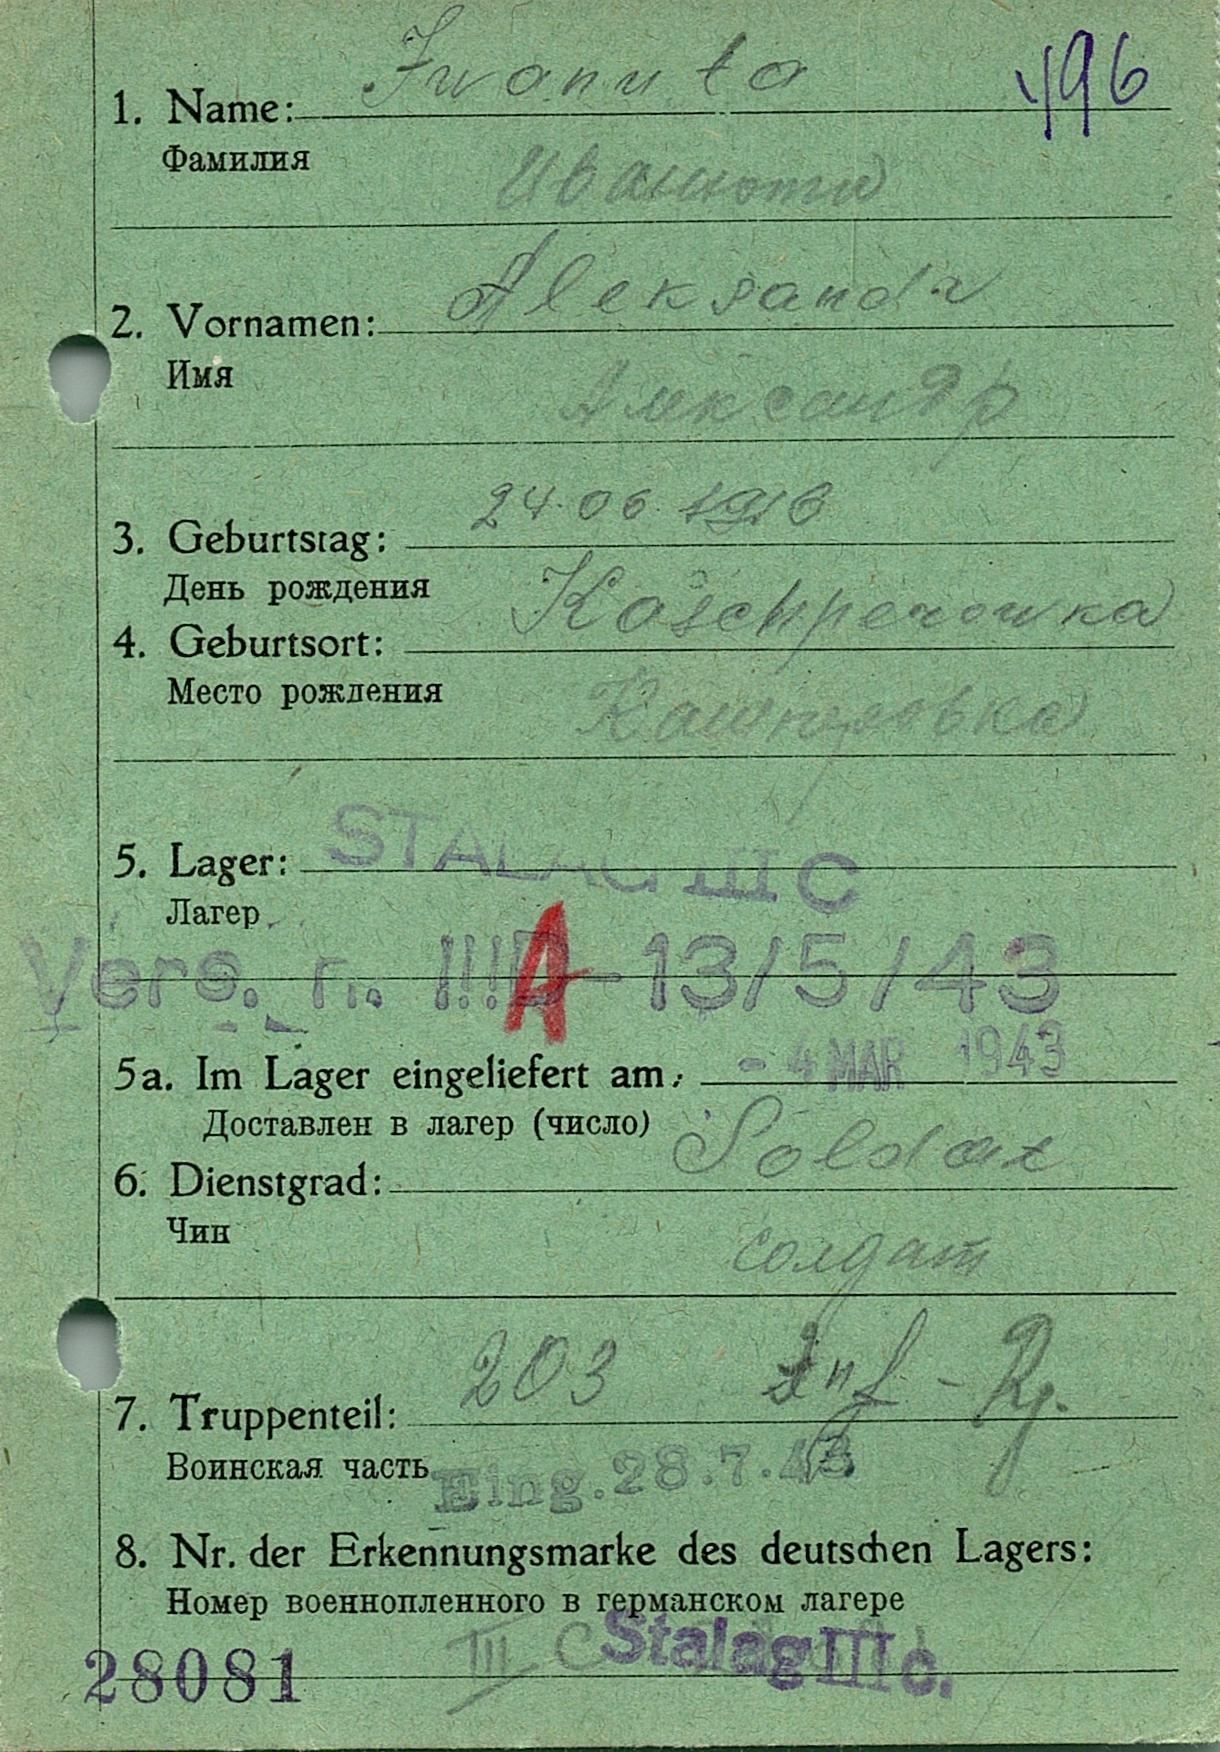 496
1. Name: Iwanuta
Фамилия
2. Vornamen: Aleksandr
Имя
Александр
3. Geburtstag: 24.06.1916
День рождения
4. Geburtsort: Koschperowka
Место рождения
5. Lager: STALAG III C
Лагер
Vers. n. III A - 13/5/43
5a. Im Lager eingeliefert am: - 4 MAR 1943
Доставлен в лагер (число)
6. Dienstgrad: Soldat
Чин
солдат
7. Truppenteil: 203 Inf - Rg.
Воинская часть Eing. 28.7.43
8. Nr. der Erkennungsmarke des deutschen Lagers:
Номер военнопленного в германском лагере
28081 III C Stalag III c.